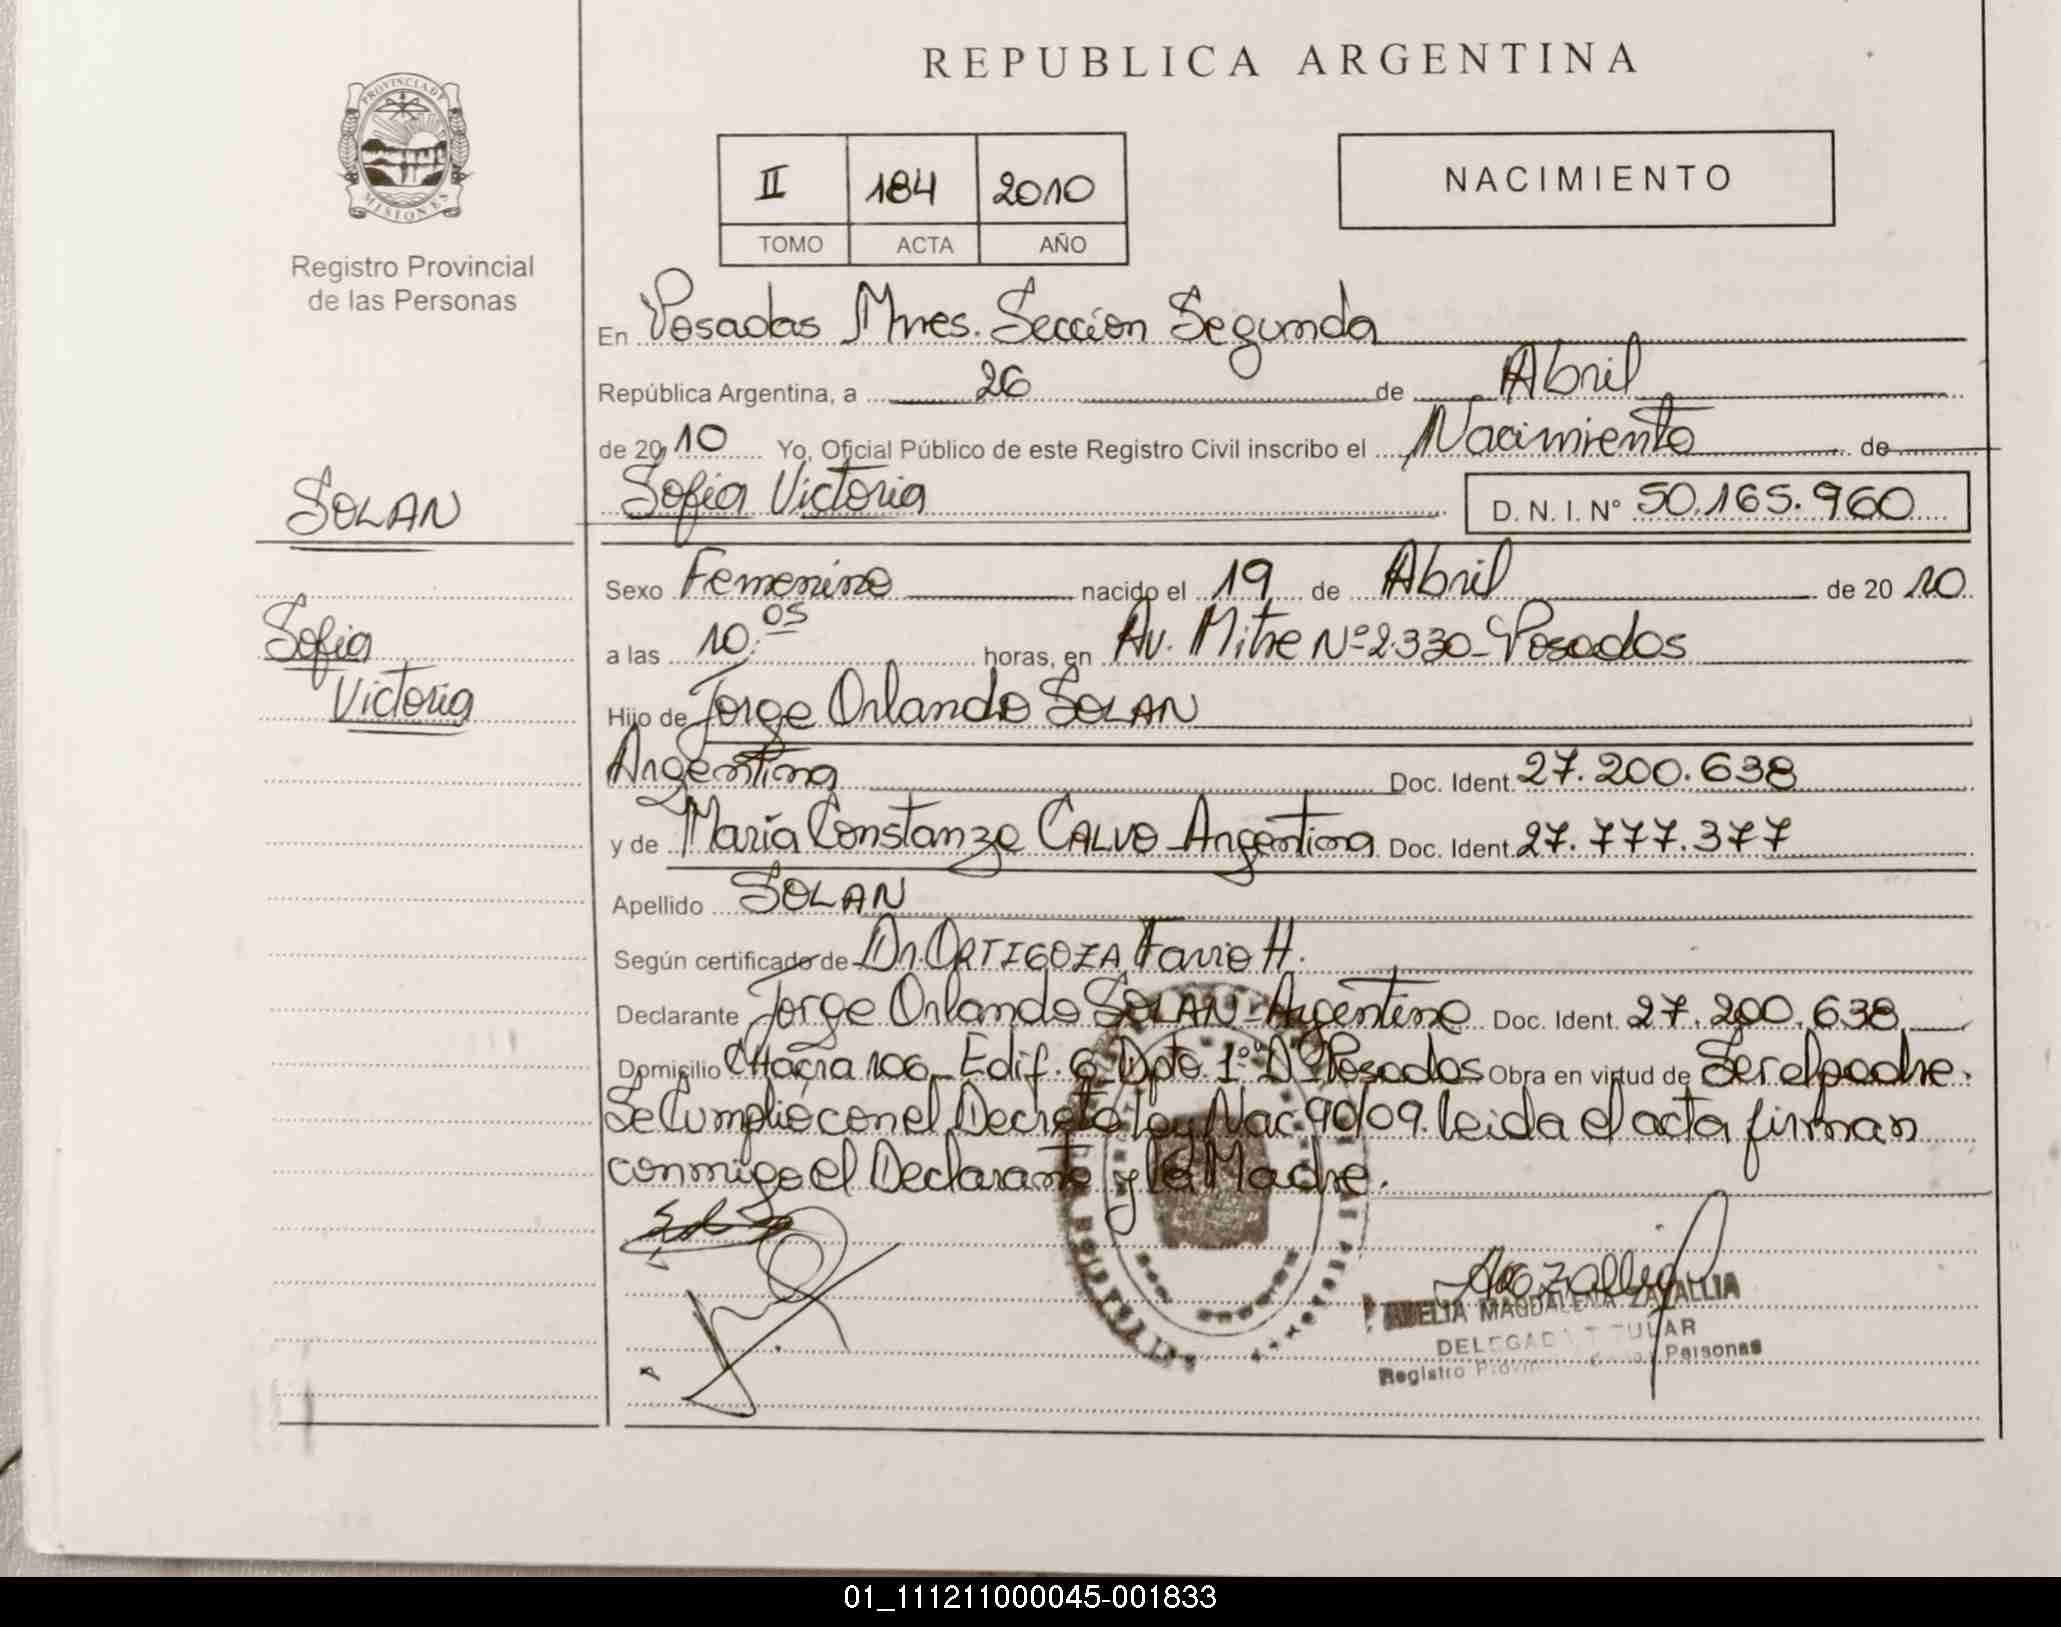 PROVINCIA DE
MISIONES
Registro Provincial
de las Personas
SOLAN
Sofia
Victoria
REPUBLICA ARGENTINA
II 184 2010
TOMO ACTA AÑO
NACIMIENTO
En Posadas Mnes. Sección Segunda
República Argentina, a 26 de Abril
de 2010 Yo, Oficial Público de este Registro Civil inscribo el Nacimiento de
Sofia Victoria D. N. I. Nº 50.165.960
Sexo Femenino nacido el 19 de Abril de 2010
a las 10:05 horas, en Av. Mitre Nº 2.330 - Posadas
Hijo de Jorge Orlando SOLAN
Argentina Doc. Ident. 27.200.638
y de María Constanza CALVO - Argentina Doc. Ident. 27.777.377
Apellido SOLAN
Según certificado de Dr. ORTIGOZA Favio H.
Declarante Jorge Orlando SOLAN - Argentino Doc. Ident. 27.200.638
Domicilio CHacra 106 - Edif. 6 Dpto. 1º "D" Posadas Obra en virtud de Ser el padre.
Se Cumplió con el Decreto ley Nac 90/09. leida el acta firman
conmigo el Declarante y la Madre.
AMELIA MAGDALENA ZAZALLIA
DELEGADA TITULAR
Registro Provincial de las Personas
01_111211000045-001833